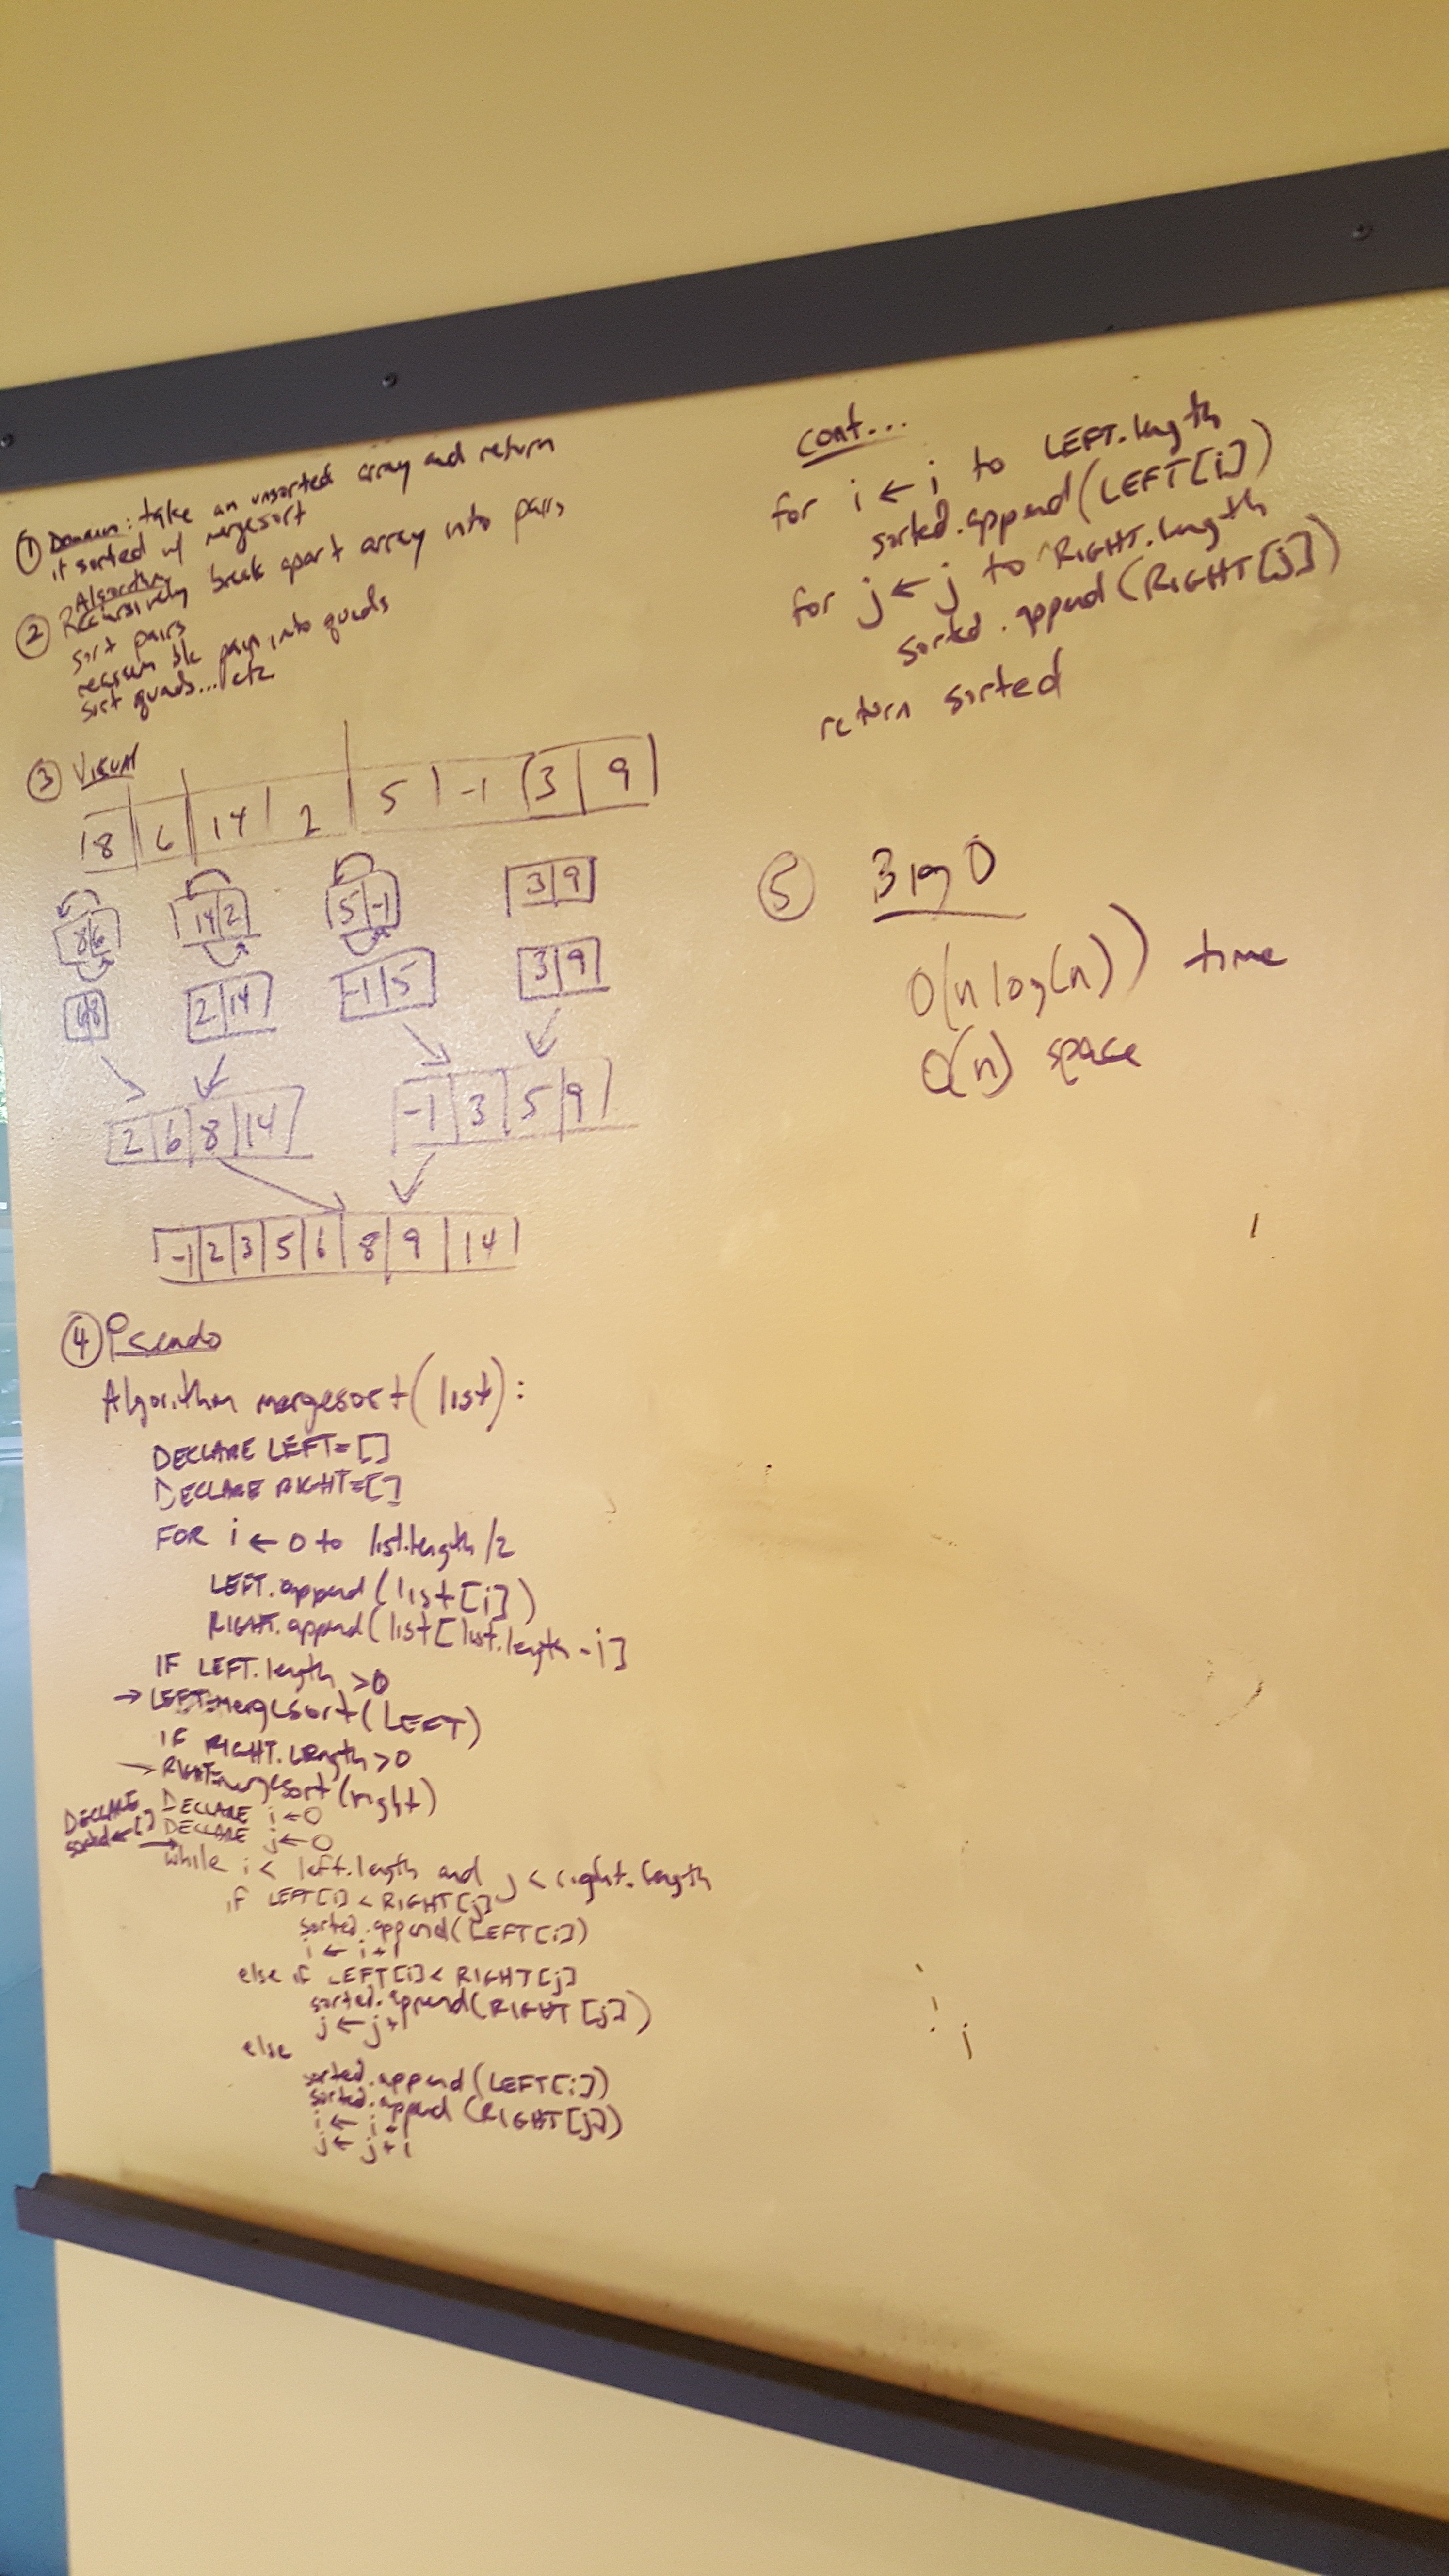 ① Domain: take an unsorted array and return
it sorted w/ mergesort
Algorithm
② Recursively break apart array into pairs
sort pairs
reassemble pairs into quads
sort quads... etc
③ Visual
8 | 6 | 14 | 2 | 5 | -1 | 3 | 9
8|6 14|2 5|-1 3|9
6|8 2|14 -1|5 3|9
2|6|8|14 -1|3|5|9
-1|2|3|5|6|8|9|14
④ Pseudo
Algorithm mergesort(list):
DECLARE LEFT=[]
DECLARE RIGHT=[]
FOR i ← 0 to list.length/2
LEFT.append(list[i])
RIGHT.append(list[list.length-i]
IF LEFT.length >0
→ LEFT=mergesort(LEFT)
IF RIGHT.Length >0
→ RIGHT=mergesort(right)
DECLARE sorted←[] →
DECLARE i←0
DECLARE j←0
while i < left.length and j < right.length
if LEFT[i] < RIGHT[j]
sorted.append(LEFT[i])
i ← i+1
else if LEFT[i] < RIGHT[j]
sorted.append(RIGHT[j])
j ← j+1
else
sorted.append(LEFT[i])
sorted.append(RIGHT[j])
i ← i+1
j ← j+1
cont...
for i ← i to LEFT.length
sorted.append(LEFT[i])
for j ← j to RIGHT.length
sorted.append(RIGHT[j])
return sorted
⑤ Big O
O(n log(n)) time
O(n) space